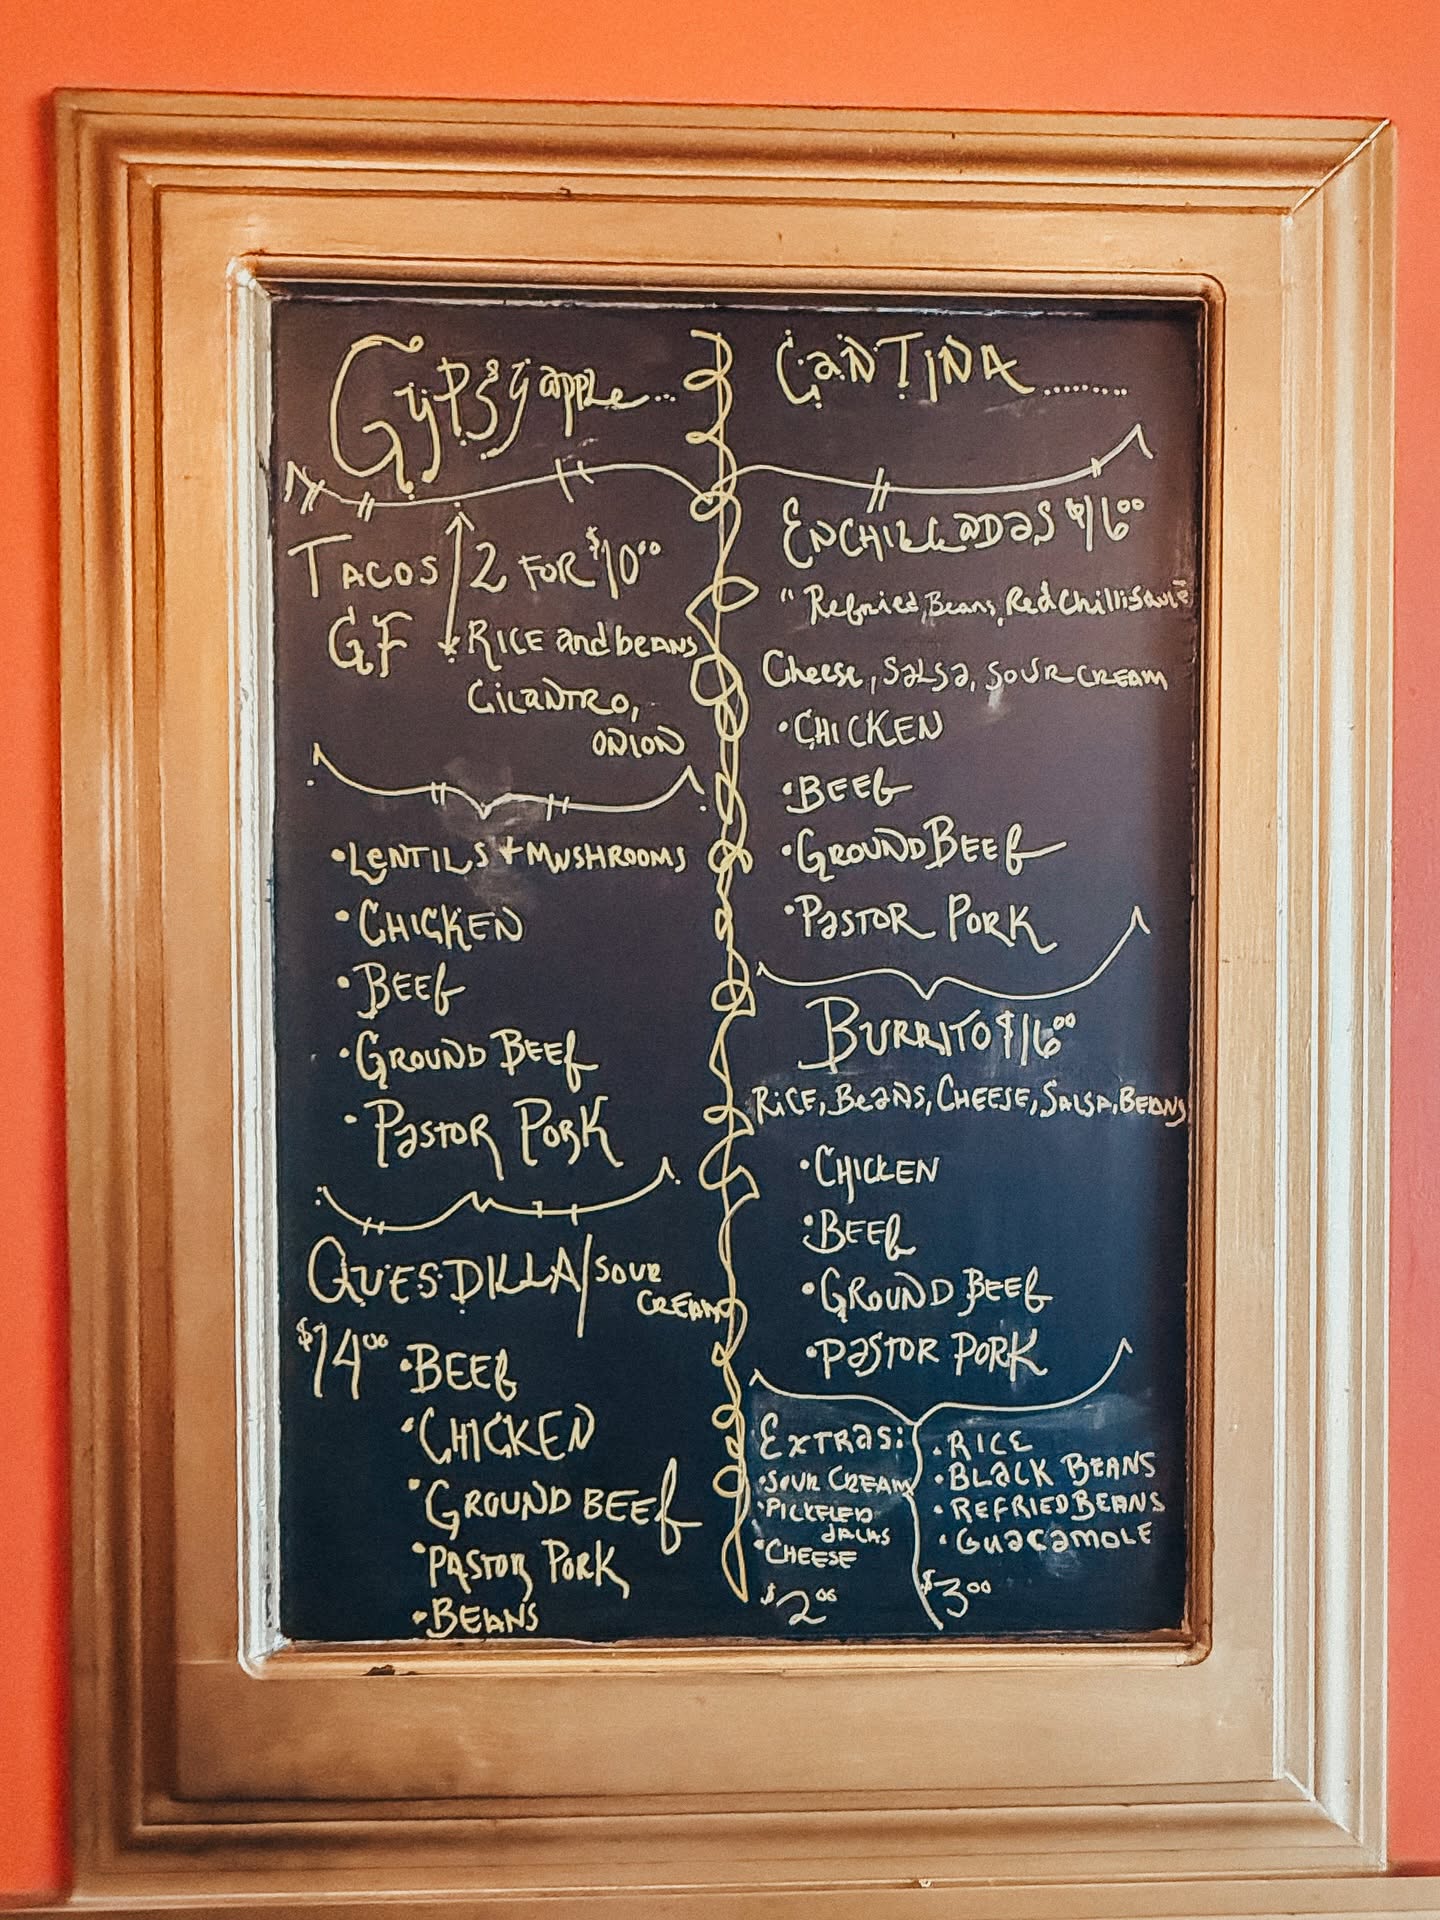 Gypsy apple...
TACOS 2 FOR $10.00
GF RICE and beans
CILANTRO,
ONION
• LENTILS + MUSHROOMS
• CHICKEN
• BEEF
• GROUND BEEF
• PASTOR PORK
QUESDILLA/SOUR
CREAM
$14.00 • BEEF
• CHICKEN
• GROUND BEEF
• PASTOR PORK
• BEANS
CANTINA.........
ENCHILLADAS $16.00
" Refried, Beans, Red Chilli Sauce
Cheese, Salsa, SOUR CREAM
• CHICKEN
• BEEF
• GROUND BEEF
• PASTOR PORK
BURRITO $16.00
RICE, BEANS, CHEESE, SALSA, BEANS
• CHICKEN
• BEEF
• GROUND BEEF
• PASTOR PORK
EXTRAS:
• SOUR CREAM
• PICKELED
JALAS
• CHEESE
$2.00
• RICE
• BLACK BEANS
• REFRIED BEANS
• GUACAMOLE
$3.00